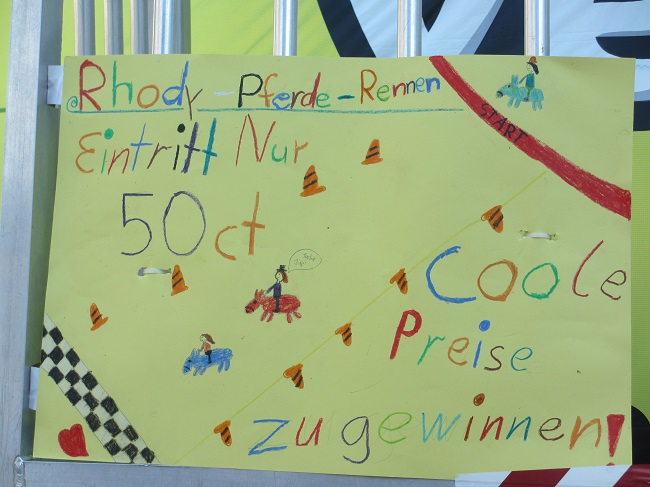 Rhody-Pferde-Rennen
START
Eintritt Nur
50 ct
Coole
Preise
zu gewinnen!